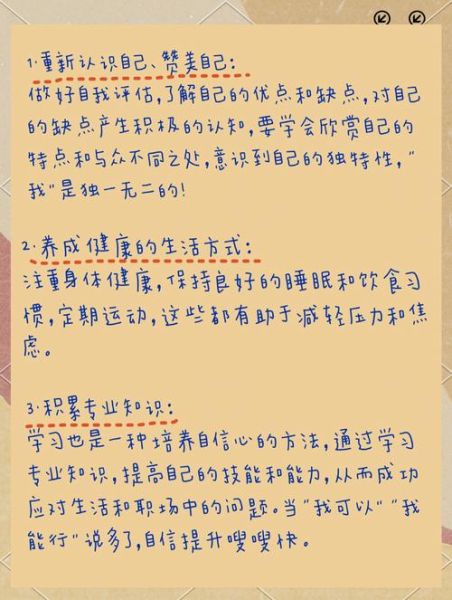 1·重新认识自己、赞美自己:
做好自我评估,了解自己的优点和缺点,对自己
的缺点产生积极的认知,要学会欣赏自己的
特点和与众不同之处,意识到自己的独特性,"
我"是独一无二的!
2·养成健康的生活方式:
注重身体健康,保持良好的睡眠和饮食习
惯,定期运动,这些都有助于减轻压力和焦
虑。
3·积累专业知识:
学习也是一种培养自信心的方法,通过学习
专业知识,提高自己的技能和能力,从而成功
应对生活和职场中的问题。当"我可以""我
能行"说多了,自信提升嗖嗖快。